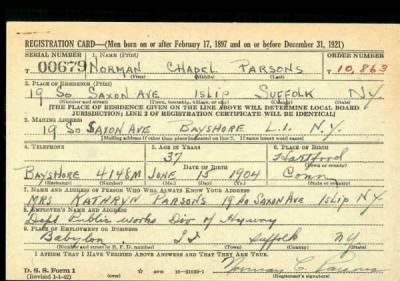 REGISTRATION CARD—(Men born on or after February 17, 1897 and on or before December 31, 1921)
SERIAL NUMBER 1. NAME (Print) ORDER NUMBER
T 00679 NORMAN CHADEL PARSONS T 10,863
(First) (Middle) (Last)
2. PLACE OF RESIDENCE (Print)
19 So SAXON AVE ISLIP SUFFOLK NY
(Number and street) (Town, township, village, or city) (County) (State)
[THE PLACE OF RESIDENCE GIVEN ON THE LINE ABOVE WILL DETERMINE LOCAL BOARD
JURISDICTION; LINE 2 OF REGISTRATION CERTIFICATE WILL BE IDENTICAL]
3. MAILING ADDRESS
19 So SAXON AVE BAYSHORE L.I. N.Y.
[Mailing address if other than place indicated on line 2. If same insert word same]
4. TELEPHONE 5. AGE IN YEARS 6. PLACE OF BIRTH
37 Hartford
DATE OF BIRTH (Town or county)
BAYSHORE 4148M JUNE 15 1904 Conn
(Exchange) (Number) (Mo.) (Day) (Yr.) (State or country)
7. NAME AND ADDRESS OF PERSON WHO WILL ALWAYS KNOW YOUR ADDRESS
MRS KATHRYN PARSONS 19 So SAXON AVE ISLIP NY
8. EMPLOYER'S NAME AND ADDRESS
Dept Public Works Div of Hyway
9. PLACE OF EMPLOYMENT OR BUSINESS
Babylon Suffolk NY
(Number and street or R. F. D. number) (Town) (County) (State)
I AFFIRM THAT I HAVE VERIFIED ABOVE ANSWERS AND THAT THEY ARE TRUE.
D. S. S. Form 1
(Revised 1-1-42) (over) Norman C. Parsons